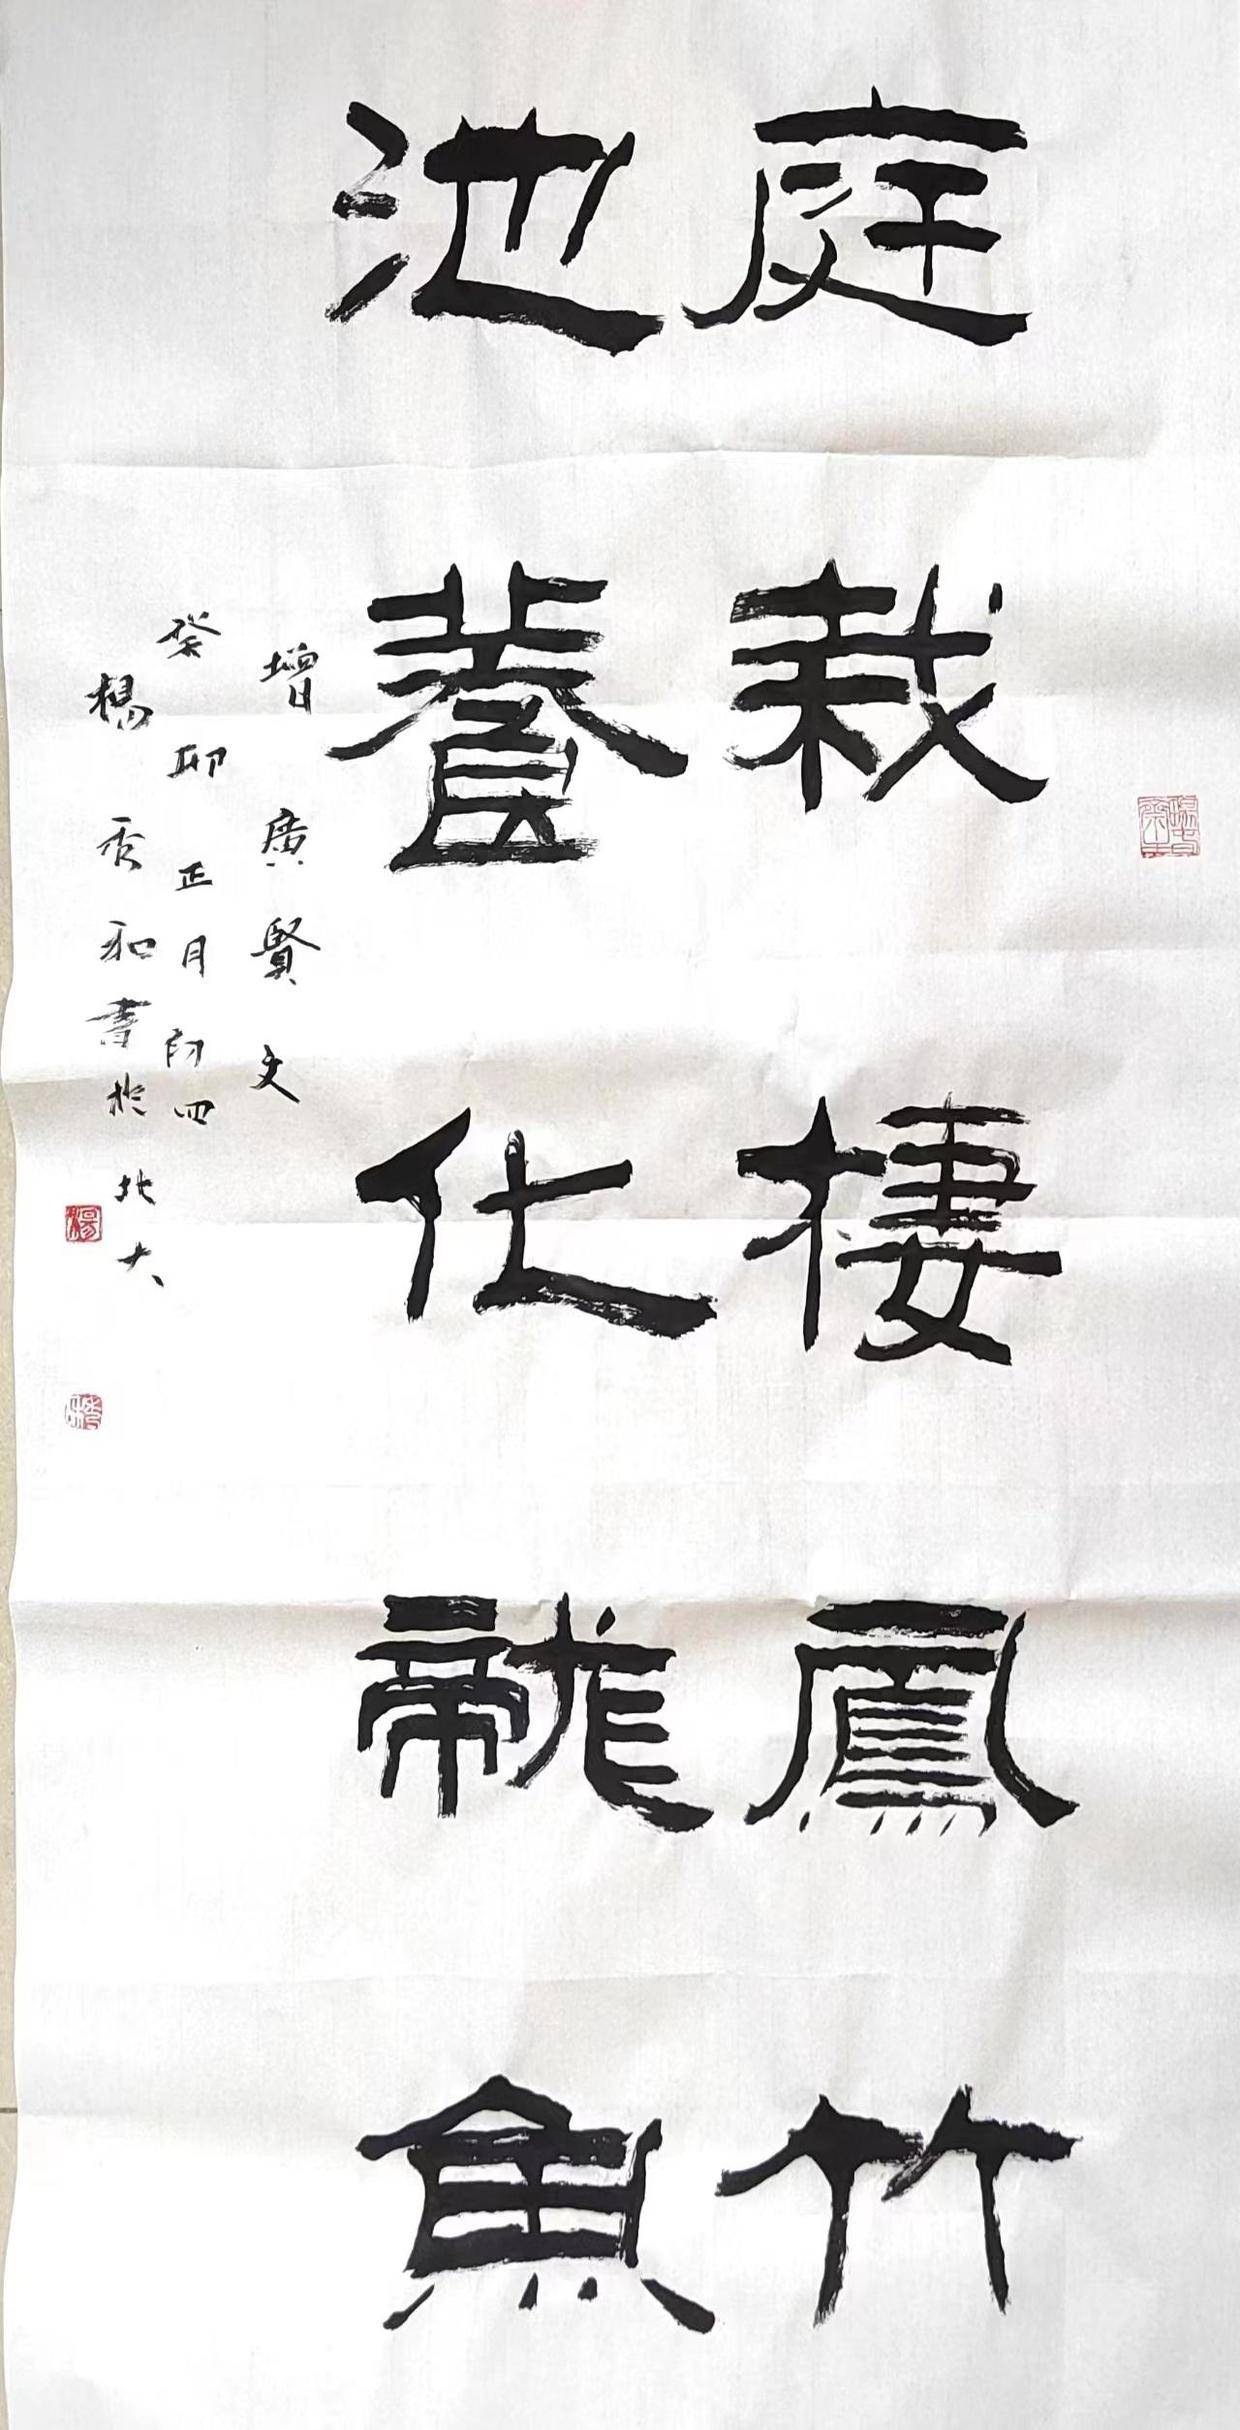 庭栽棲鳳竹
池養化龍魚
增廣賢文
癸卯正月初四
楊秀和書於北大